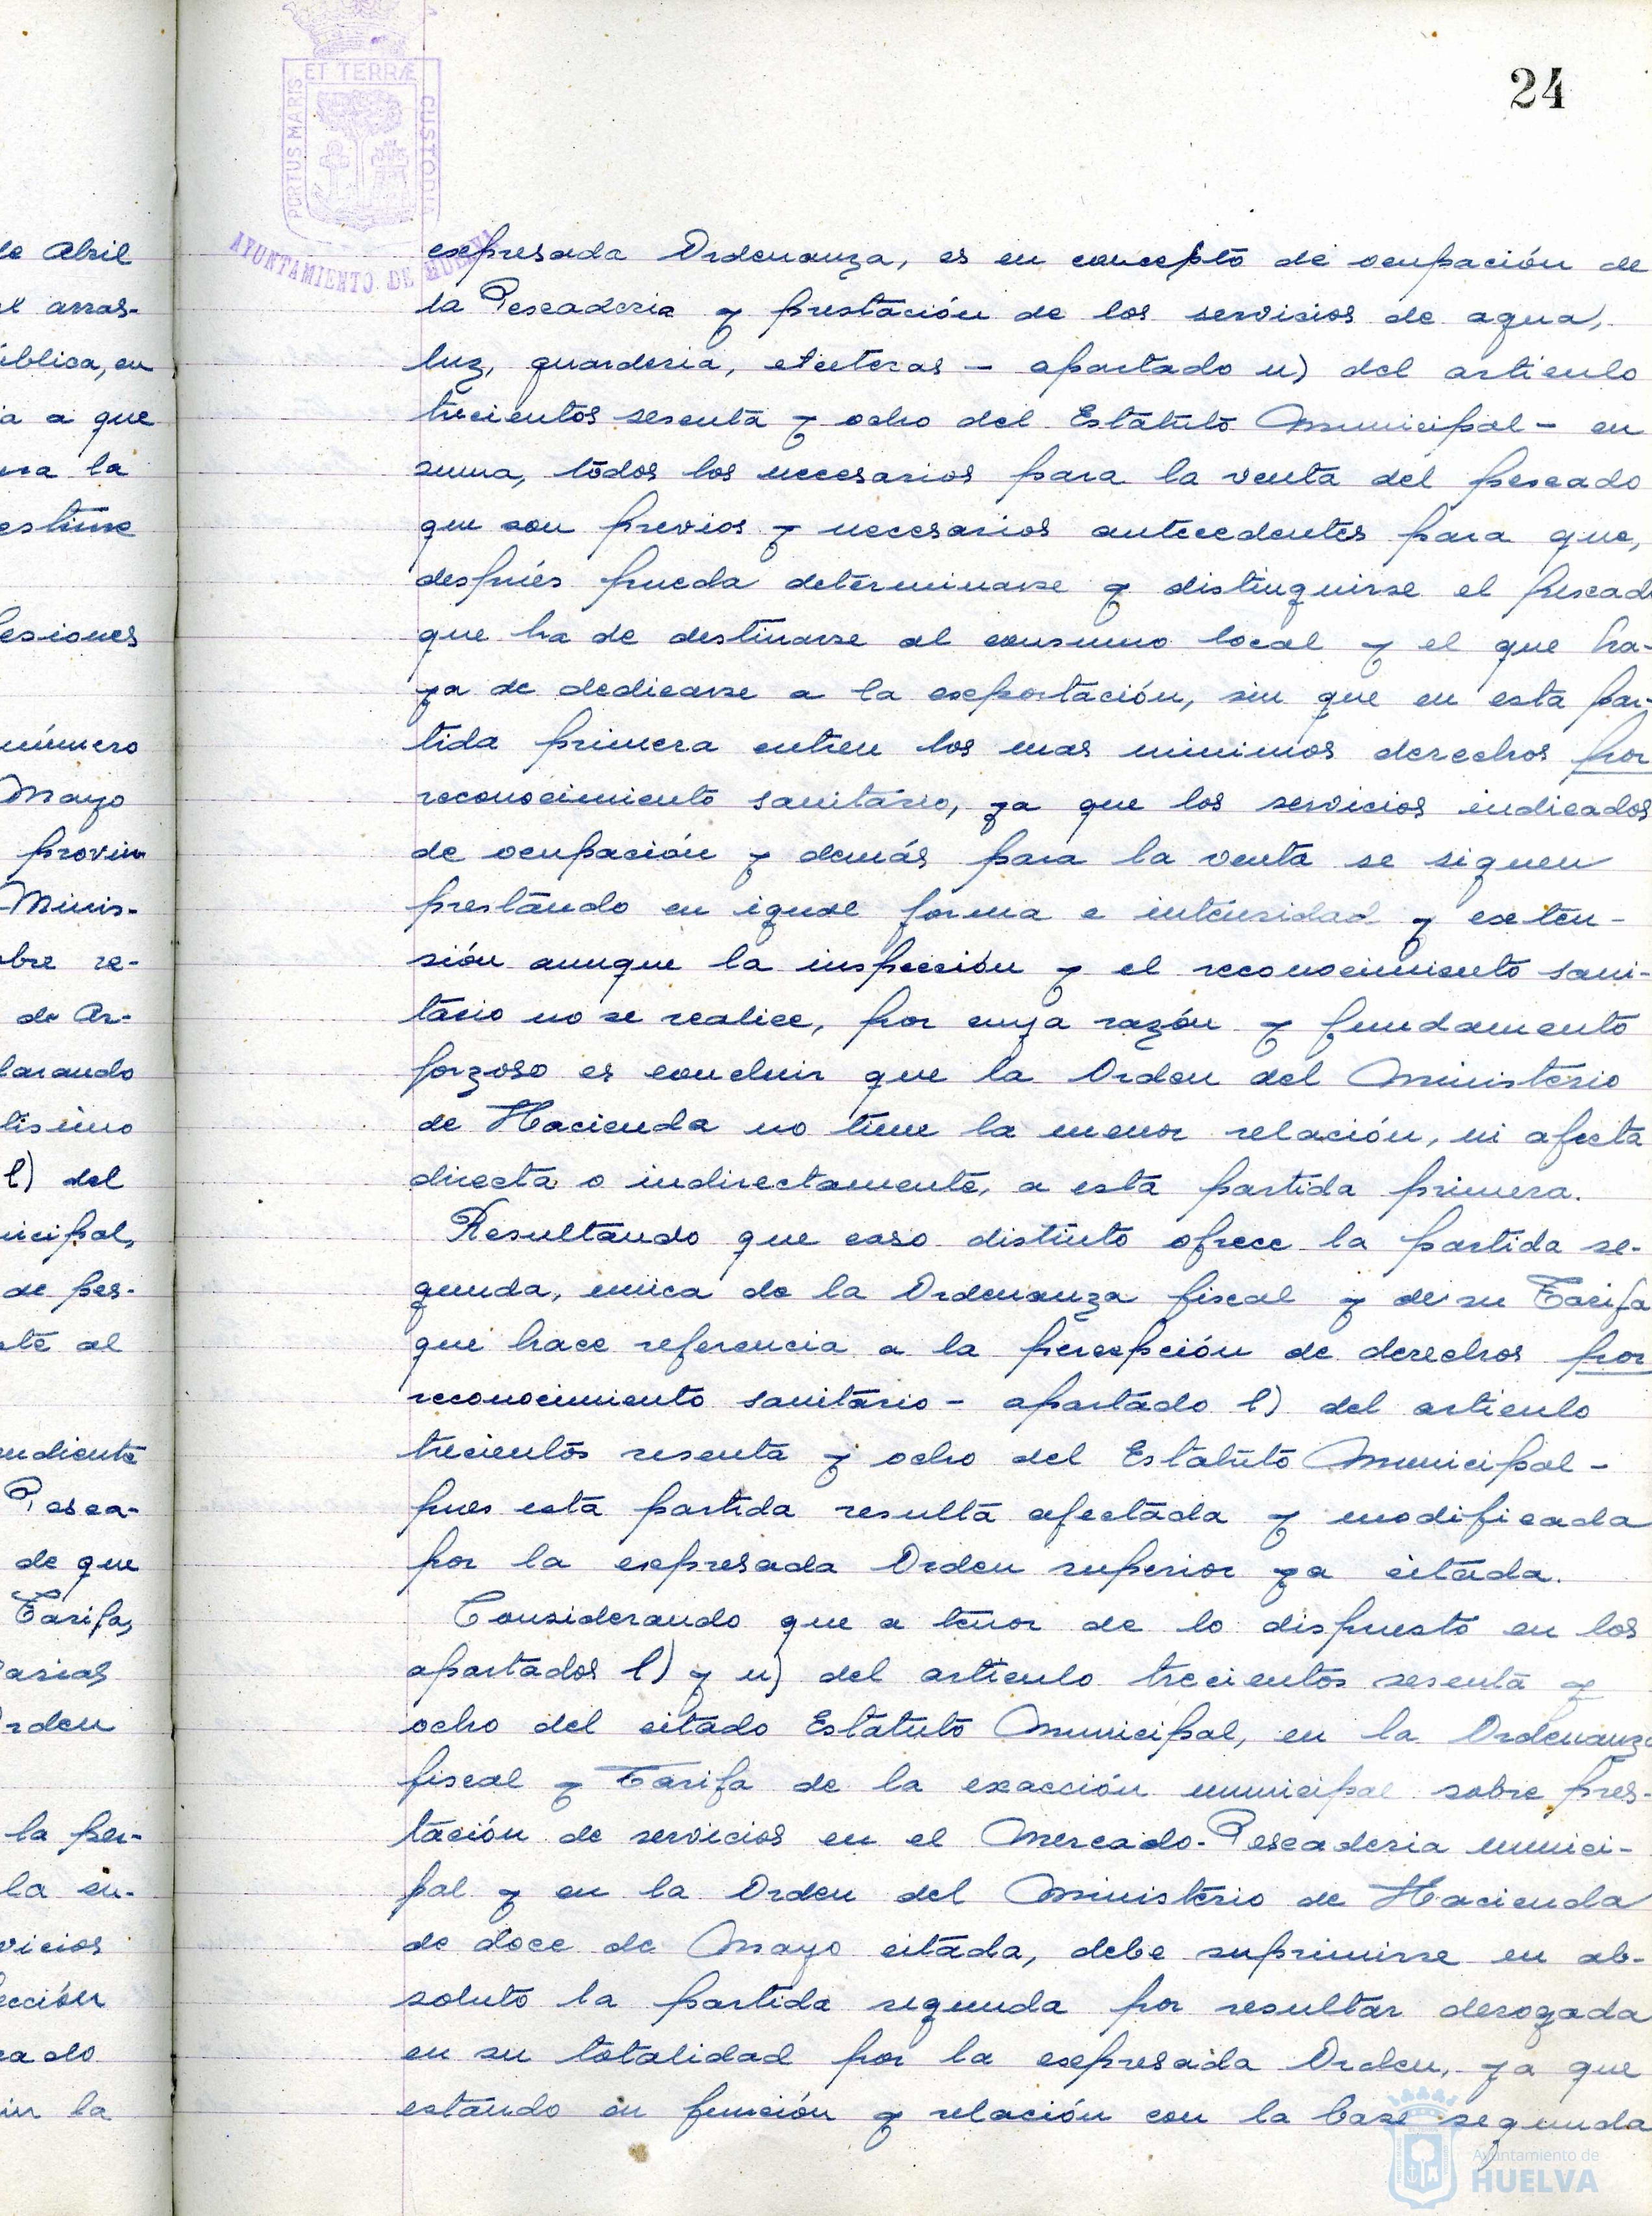 24
ET TERRÆ
PORTUS MARIS
CUSTODIA
AYUNTAMIENTO DE HUELVA
expresada Ordenanza, es en concepto de ocupación de
la Pescaderia y prestación de los servisios de agua,
luz, guarderia, etcéteras - apartado u) del articulo
trecientos sesenta y ocho del Estatuto Municipal - en
suma, todos los necesarios para la venta del pescado
que son previos y necesarios antecedentes para que,
después pueda determinarse y distinguirse el pescad
que ha de destinarse al consumo local y el que ha-
ya de dedicarse a la exportación, sin que en esta par-
tida primera entren los mas minimos derechos por
reconocimiento sanitario, ya que los servicios indicados
de ocupación y demás para la venta se siguen
prestando en igual forma e intensidad y exten-
sión aunque la inspección y el reconocimiento sani-
tario no se realice, por cuya razón y fundamento
forzoso es concluir que la Orden del Ministerio
de Hacienda no tiene la menor relación, ni afecta
directa o indirectamente, a esta partida primera.
Resultando que caso distinto ofrece la partida se-
gunda, unica de la Ordenanza fiscal y de su Tarifa
que hace referencia a la percepción de derechos por
reconocimiento sanitario - apartado l) del articulo
trecientos sesenta y ocho del Estatuto Municipal -
pues esta partida resulta afectada y modificada
por la expresada Orden superior ya citada.
Considerando que a tenor de lo dispuesto en los
apartados l) y u) del articulo trecientos sesenta y
ocho del citado Estatuto Municipal, en la Ordenanza
fiscal y Tarifa de la exacción municipal sobre pres-
tación de servicios en el Mercado-Pescaderia munici-
pal y en la Orden del Ministerio de Hacienda
de doce de Mayo citada, debe suprimirse en ab-
soluto la partida segunda por resultar derogada
en su totalidad por la expresada Orden, ya que
estando en función y relación con la base segunda
de Abril
arras-
ública, en
a que
la
estime
esiones
número
Mayo
provin
Minis-
bre re-
de Ar-
larando
lisimo
l) del
nicipal,
de pes-
te al
endiente
Pesca-
de que
Tarifa,
arias
rden
la per-
la en-
vicios
ección
cado
in la
Ayuntamiento de
HUELVA